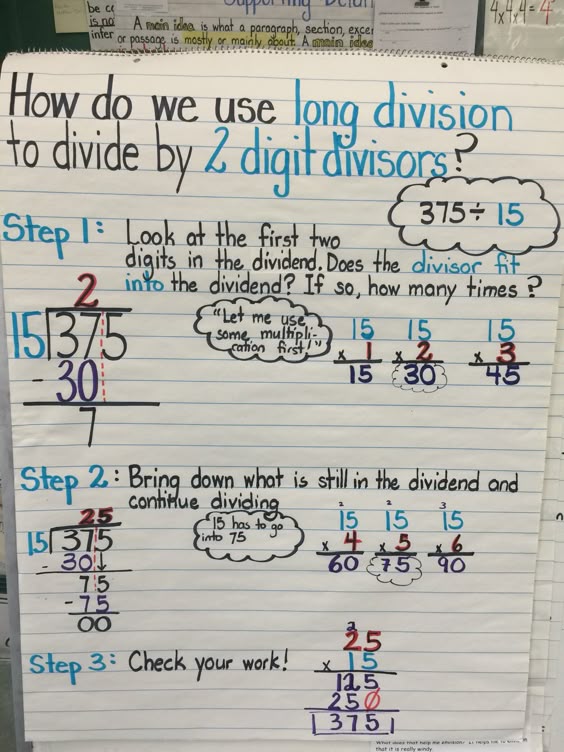 Supporting Detail
be
is no
infer
A main idea is what a paragraph, section, excer
or passage is mostly or mainly about. A main idea
4 4 4 = 4
x4 x1 x1
How do we use long division
to divide by 2 digit divisors?
375 ÷ 15
Step 1: Look at the first two
digits in the dividend. Does the divisor fit
into the dividend? If so, how many times?
2
15 375
- 30
7
"Let me use
some multipli-
cation first!"
15 15 15
x 1 x 2 x 3
15 30 45
Step 2: Bring down what is still in the dividend and
continue dividing
25
15 375
- 30↓
75
- 75
00
15 has to go
into 75
2 2 3
15 15 15
x 4 x 5 x 6
60 75 90
Step 3: Check your work!
2
25
x 15
125
250
375
that it is really windy.